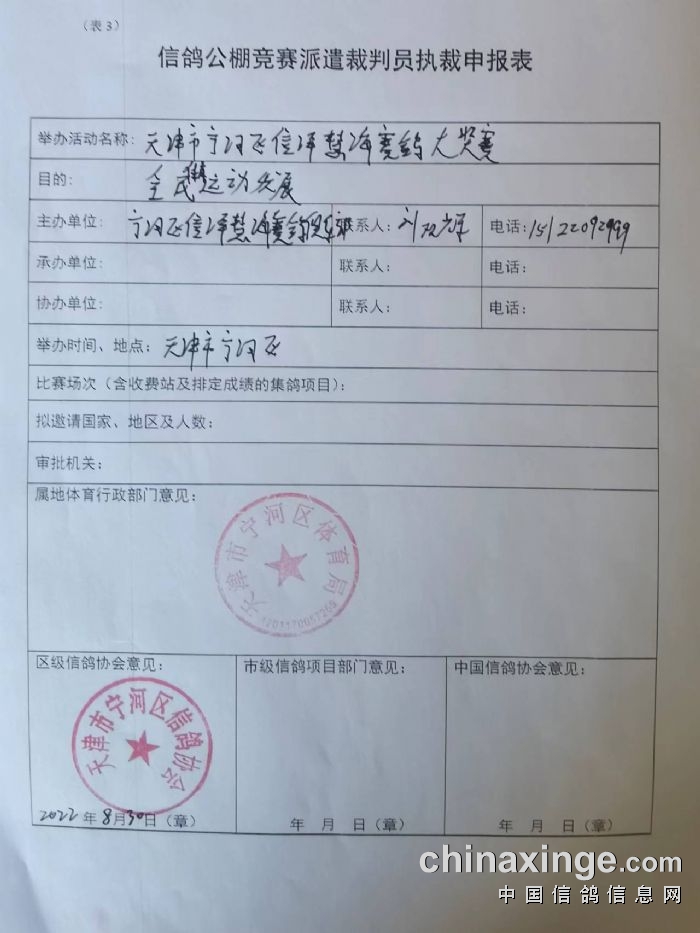 （表3）
信鸽公棚竞赛派遣裁判员执裁申报表
举办活动名称：天津市宁河区信泽慧海赛鸽大奖赛
目的：全民运动发展
主办单位：宁河区信泽慧海赛鸽俱乐部 联系人：刘 电话：15122092999
承办单位： 联系人： 电话：
协办单位： 联系人： 电话：
举办时间、地点：天津市宁河区
比赛场次（含收费站及排定成绩的集鸽项目）：
拟邀请国家、地区及人数：
审批机关：
属地体育行政部门意见：
天津市宁河区体育局
区级信鸽协会意见： 市级信鸽项目部门意见： 中国信鸽协会意见：
天津市宁河区信鸽协会
2022年8月30日（章） 年 月 日（章） 年 月 日（章）
chinaxinge.com
中国信鸽信息网